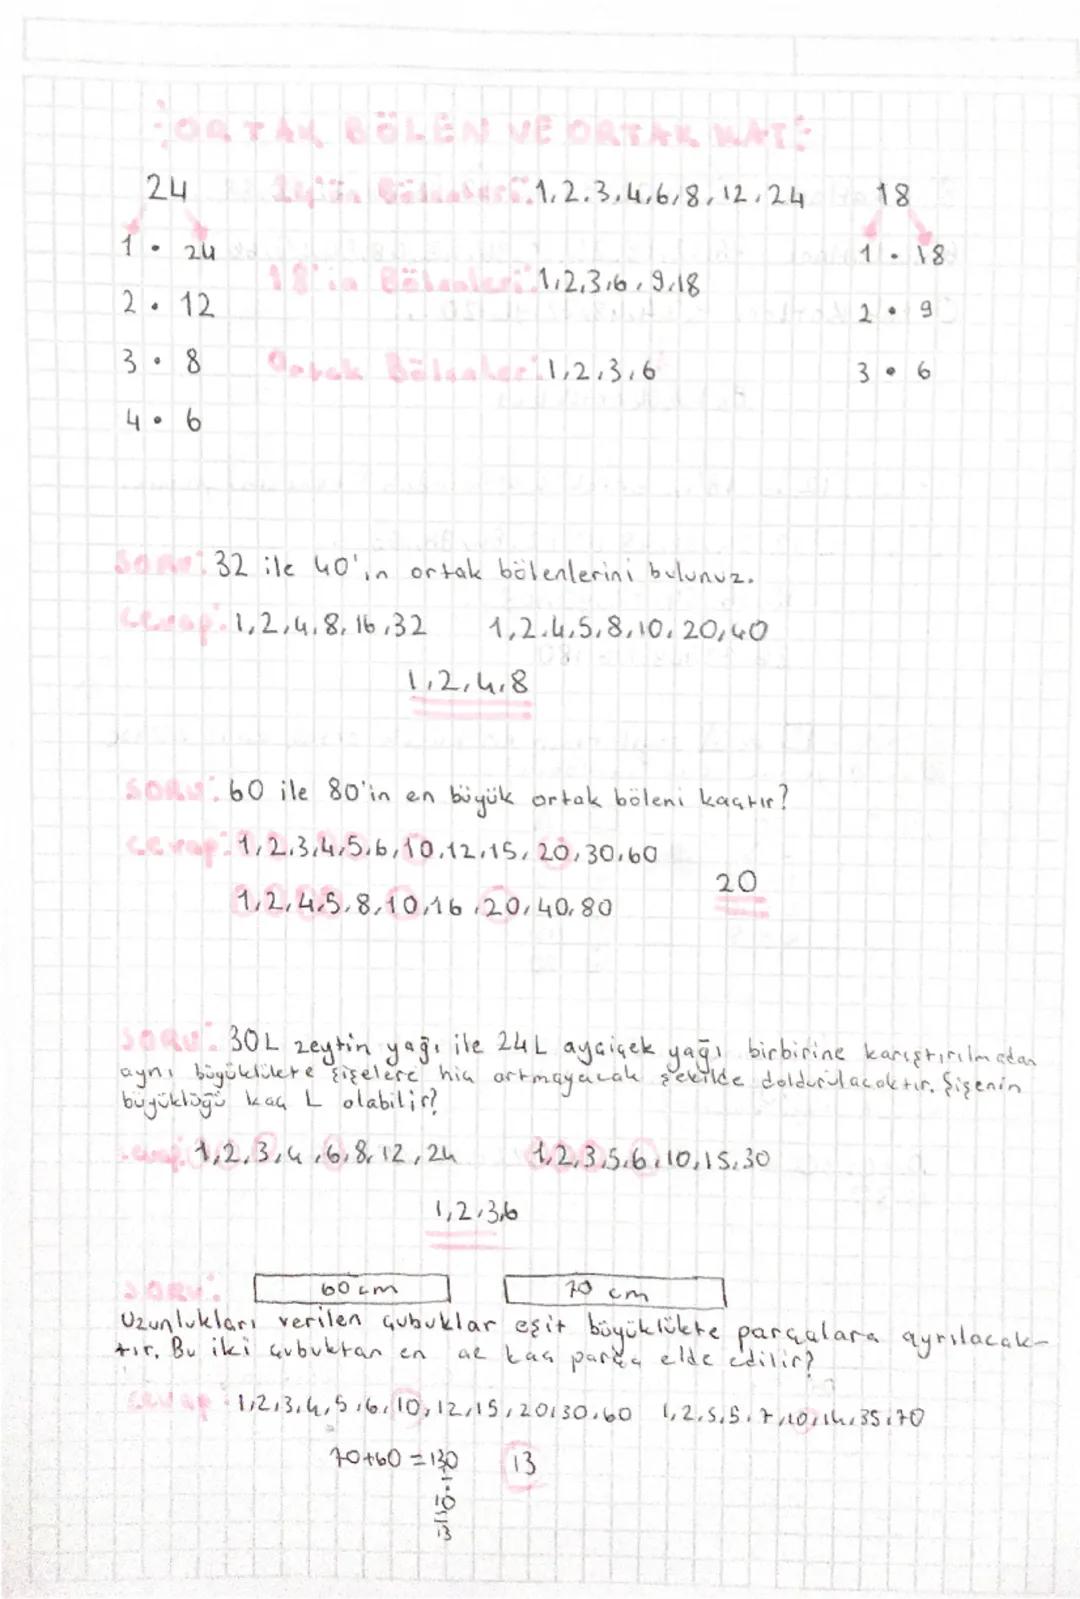 ORTAK BÖLEN VE ORTAK KAT
24 24'ün Bölenleri: 1,2,3,4,6,8,12,24 18
1 . 24 1 . 18
18'in Bölenleri: 1,2,3,6,9,18
2 . 12 2 . 9
3 . 8 Ortak Bölenler: 1,2,3,6 3 . 6
4 . 6
SORU: 32 ile 40'ın ortak bölenlerini bulunuz.
Cevap: 1,2,4,8,16,32 1,2,4,5,8,10,20,40
1,2,4,8
SORU: 60 ile 80'in en büyük ortak böleni kaçtır?
Cevap: 1,2,3,4,5,6,10,12,15,20,30,60
20
1,2,4,5,8,10,16,20,40,80
SORU: 30L zeytin yağı ile 24L ayçiçek yağı birbirine karıştırılmadan
aynı büyüklükte şişelere hiç artmayacak şekilde doldurulacaktır. Şişenin
büyüklüğü kaç L olabilir?
Cevap: 1,2,3,4,6,8,12,24 1,2,3,5,6,10,15,30
1,2,3,6
SORU: 60 cm 70 cm
Uzunlukları verilen çubuklar eşit büyüklükte parçalara ayrılacak-
tır. Bu iki çubuktan en az kaç parça elde edilir?
Cevap: 1,2,3,4,5,6,10,12,15,20,30,60 1,2,5,5,7,10,14,35,70
70+60=130 13